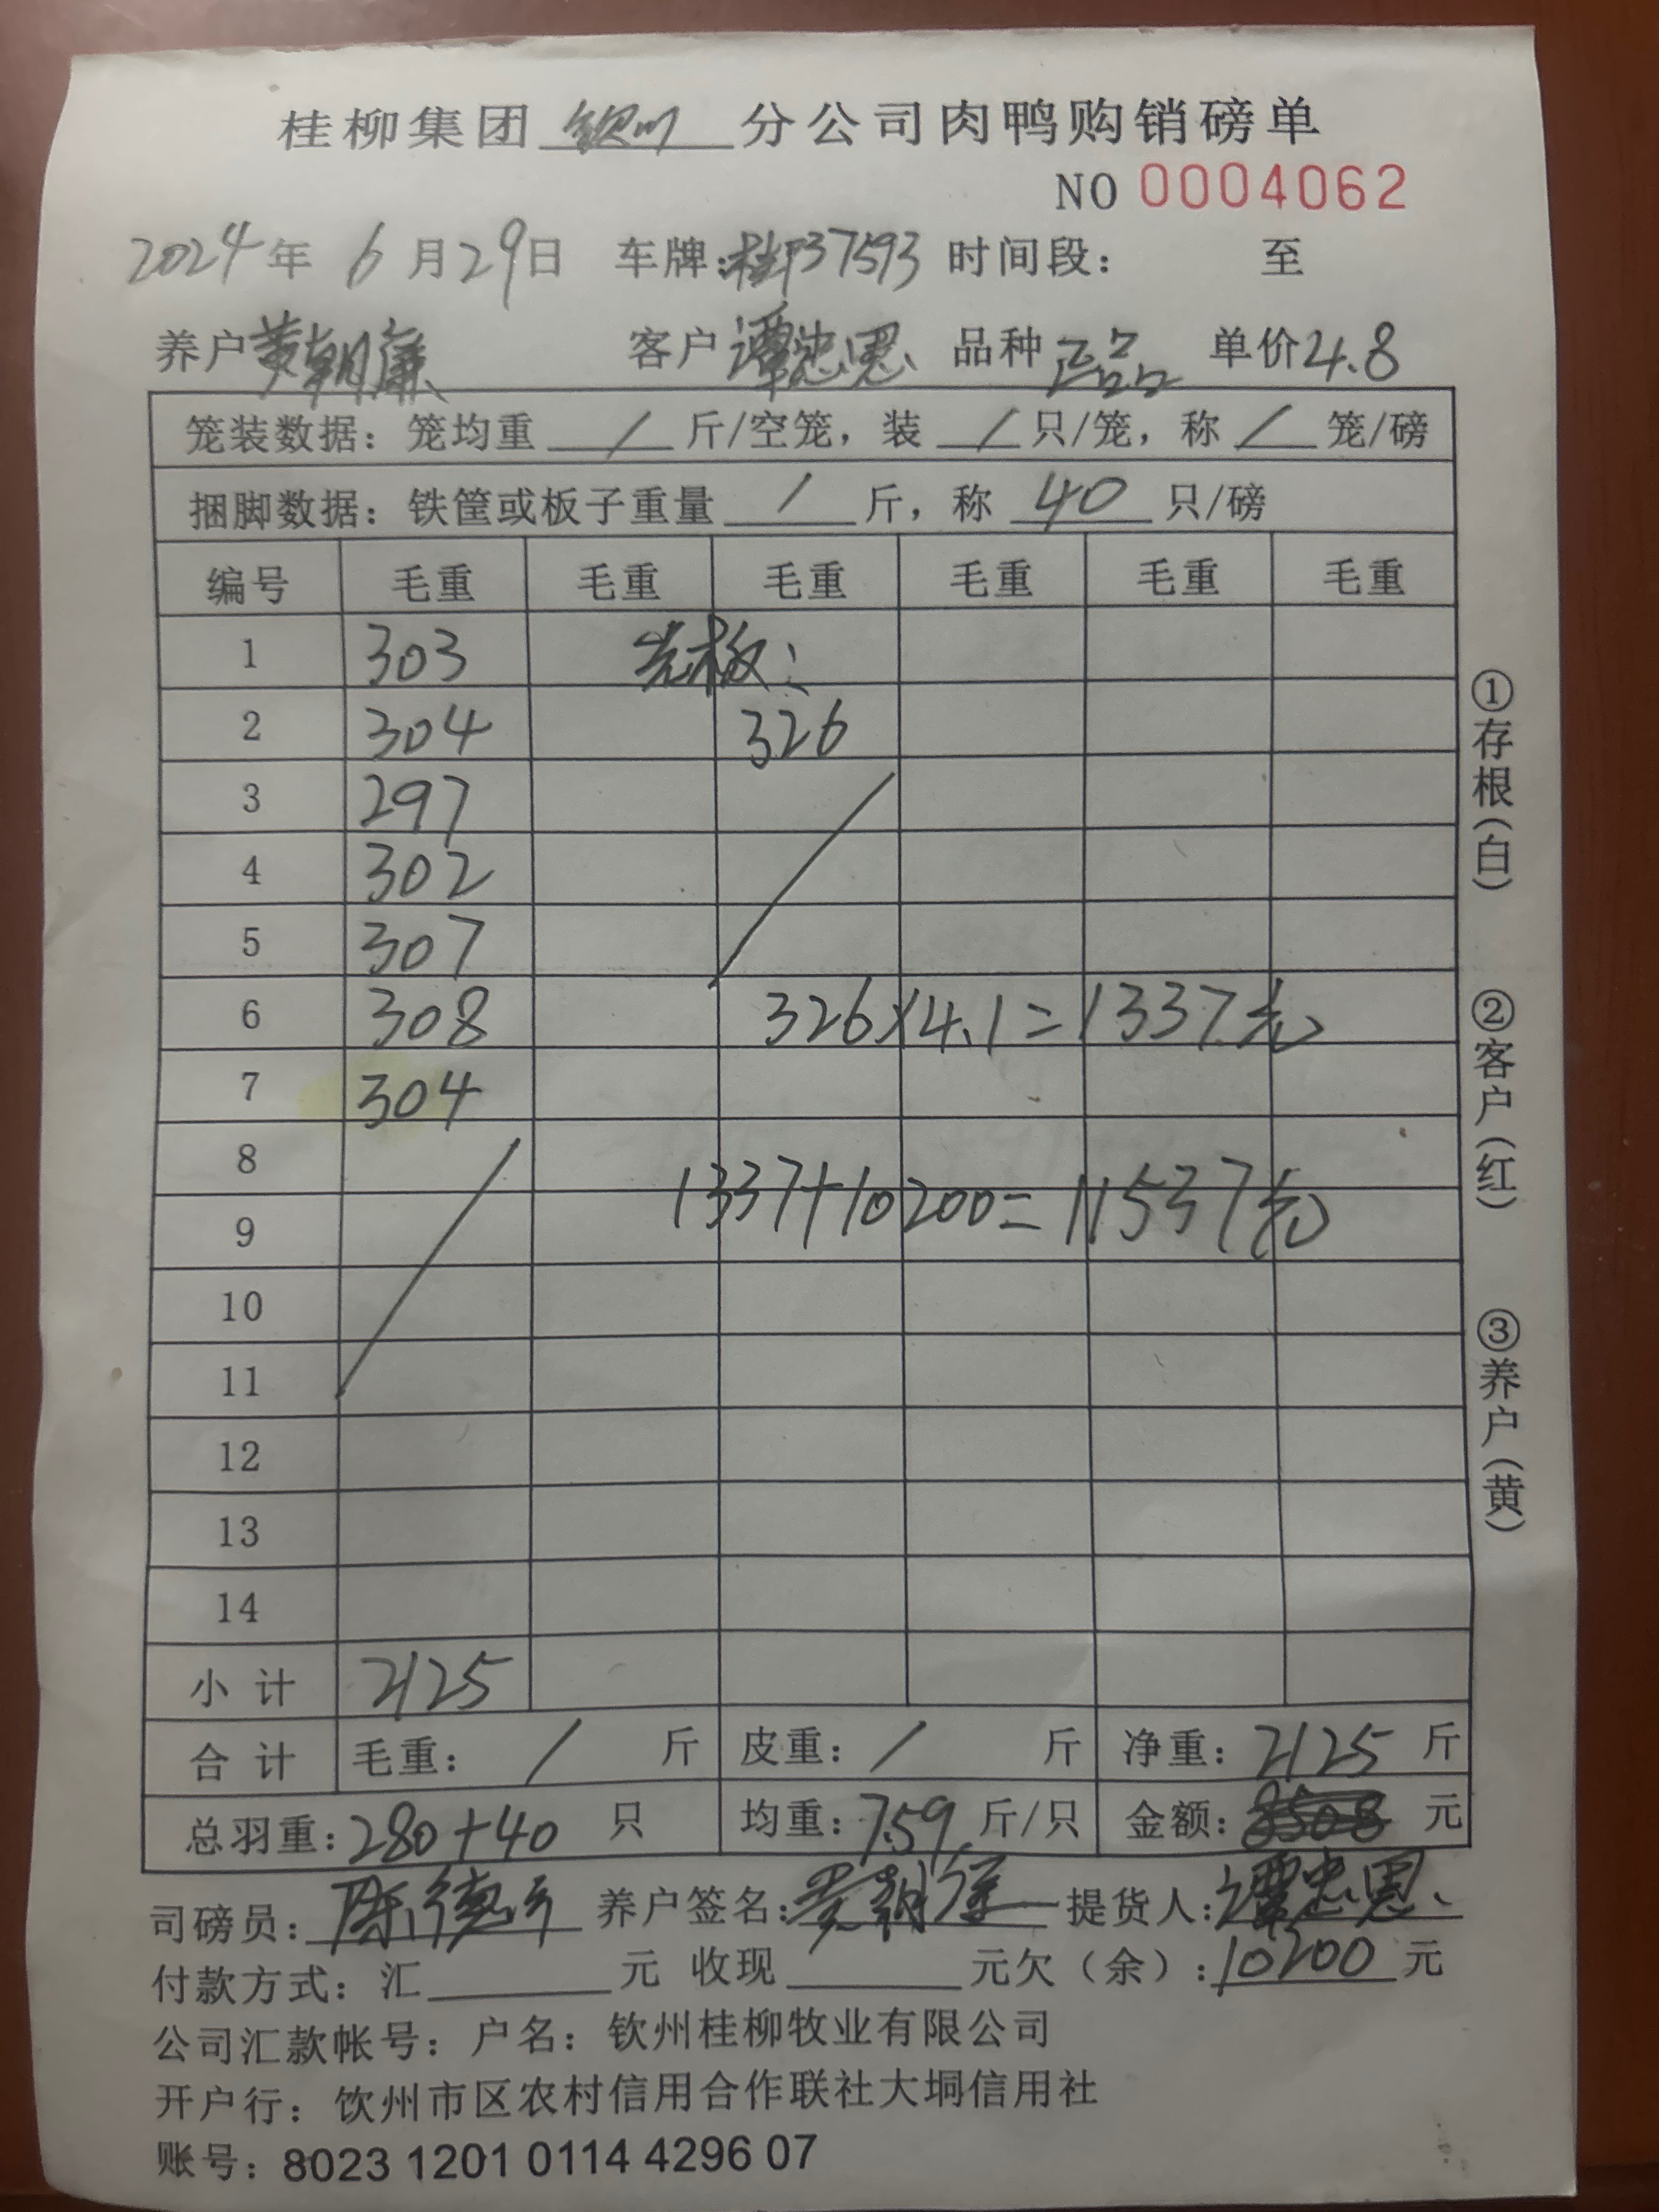 桂柳集团 钦州 分公司肉鸭购销磅单
NO 0004062
2024年 6月29日 车牌:桂P37593 时间段: 至
养户 黄朝廉 客户 谭忠恩 品种 正品 单价4.8
笼装数据: 笼均重 / 斤/空笼, 装 / 只/笼, 称 / 笼/磅
捆脚数据: 铁筐或板子重量 / 斤, 称 40 只/磅
编号 毛重 毛重 毛重 毛重 毛重 毛重
1 303 光板:
2 304 326
3 297
4 302
5 307
6 308 326×4.1=1337元
7 304
8
1337+10200=11537元
9
10
11
12
13
14
小计 2125
合计 毛重: / 斤 皮重: / 斤 净重: 2125 斤
总羽重:280+40 只 均重:7.59 斤/只 金额: 8508 元
司磅员: 养户签名: 提货人:谭忠恩
付款方式: 汇 元 收现 元欠(余):10200元
公司汇款帐号: 户名: 钦州桂柳牧业有限公司
开户行: 饮州市区农村信用合作联社大垌信用社
账号: 8023 1201 0114 4296 07
①存根(白)
②客户(红)
③养户(黄)